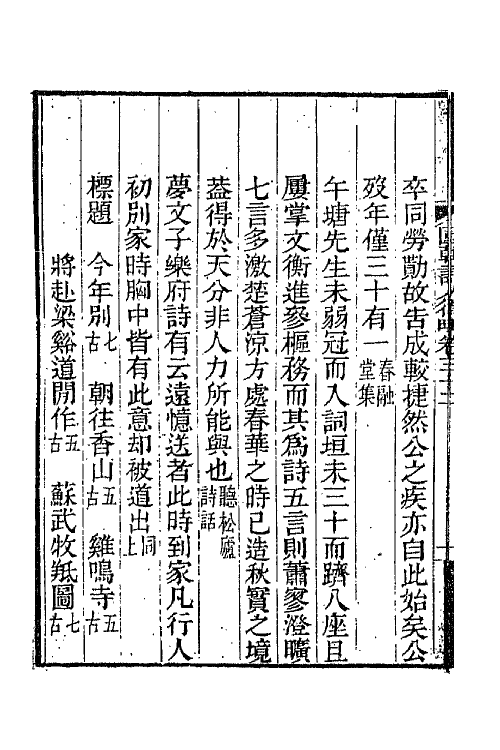 卒同勞勩故告成較捷然公之疾亦自此始矣公
歿年僅三十有一春融堂集
午塘先生未弱冠而入詞垣未三十而躋八座且
屢掌文衡進參樞務而其為詩五言則蕭寥澄曠
七言多激楚蒼涼方處春華之時已造秋實之境
葢得於天分非人力所能與也聽松廬詩話
夢文子樂府詩有云遠憶送者此時到家凡行人
初別家時胸中皆有此意却被道出同上
標題　今年別七古　朝往香山五古　雞鳴寺五古
將赴梁谿道閒作五古　蘇武牧羝圖七古